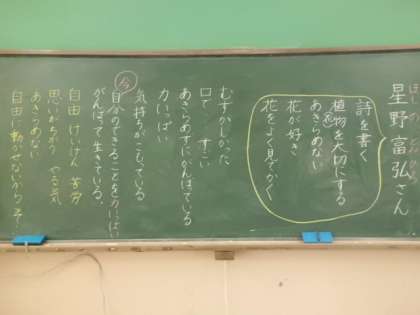 ほしの とみひろ
星野富弘さん
詩を書く
植物を大切にする
花
あきらめない
花が好き
花をよく見てかく
むずかしかった
口で すごい
あきらめずにがんばっている
力いっぱい
気持ちがこもっている
今
自分のできることを力いっぱい
がんばって生きている。
自由 けいけん 苦労
思いがちがう やる気
あきらめない
自由に動かせないから